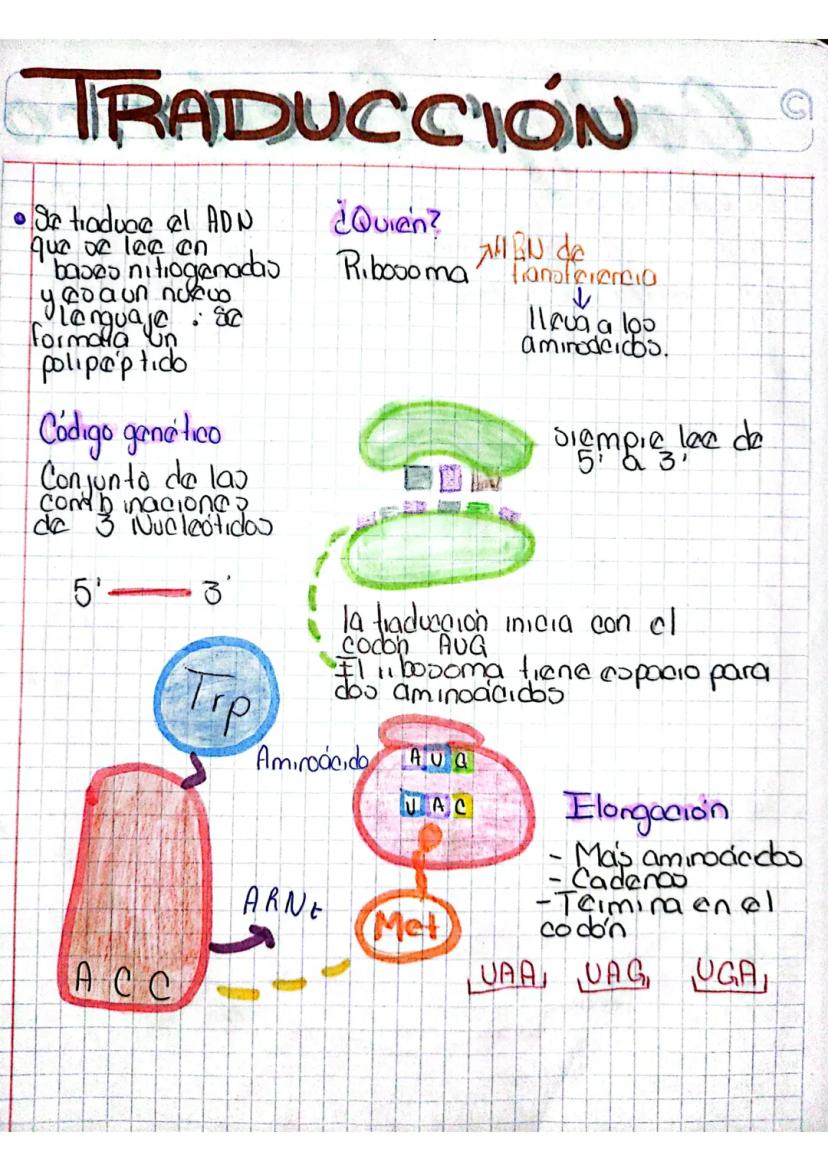 TRADUCCIÓN
©
• Se traduce el ADN
que se lee en
bases nitrogenadas
y es a un nuevo
lenguaje : se
formará un
polipéptido
¿Quién?
Ribosoma
ARN de
transferencia
lleva a los
aminoácidos.
Código genético
Conjunto de las
combinaciones
de 3 Nucleótidos
5' 3'
siempre lee de
5' a 3'
la traducción inicia con el
codón AUG
El ribosoma tiene espacio para
dos aminoácidos
Trp
Aminoácido
A U G
U A C
Met
ARNt
A C C
Elongación
- Más aminoácidos
- Cadenas
- Termina en el
codón
UAA UAG UGA